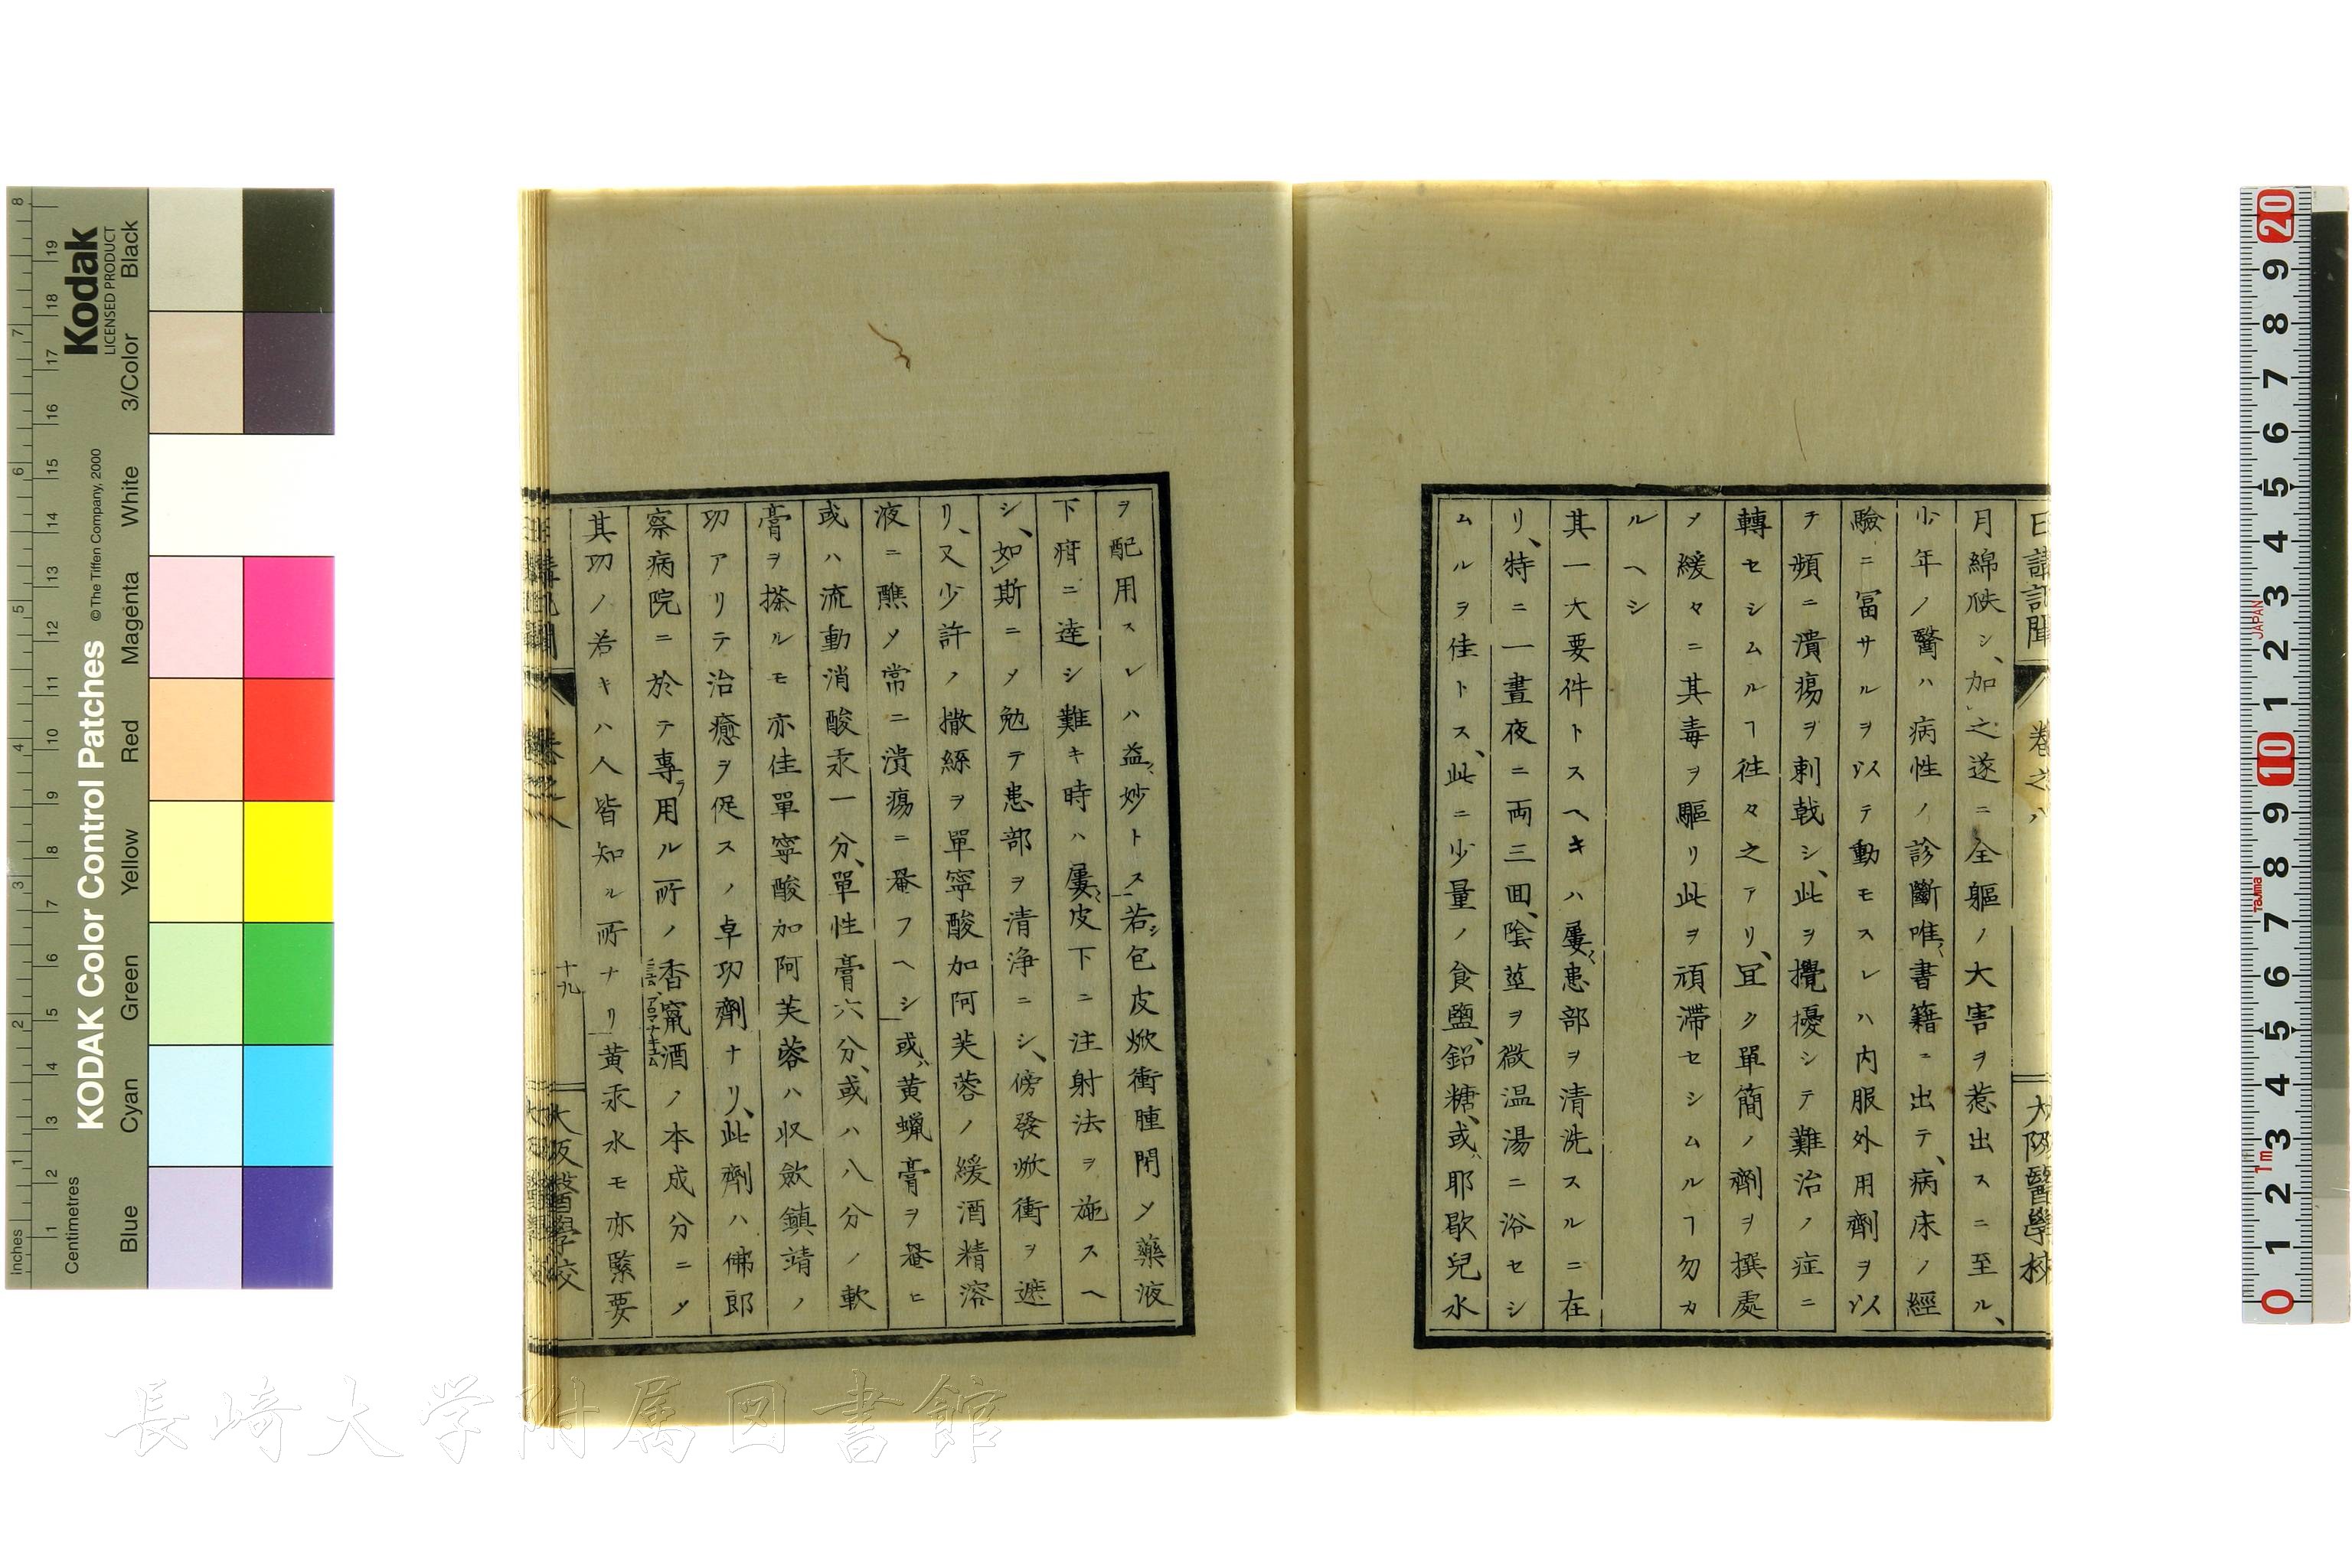 日講記聞
卷之八
大阪醫學校
月綿紩シ、加之遂ニ全軀ノ大害ヲ惹出スニ至ル、
少年ノ醫ハ病性ノ診斷唯書籍ニ出テ、病床ノ經
驗ニ冨サルヲ以テ動モスレハ内服外用劑ヲ以
テ頻ニ潰瘍ヲ刺戟シ、此ヲ攪擾シテ難治ノ症ニ
轉セシムルヿ徃々之アリ、宜ク單簡ノ劑ヲ撰處
メ緩々ニ其毒ヲ驅リ此ヲ頑滞セシムルヿ勿カ
ルヘシ
其一大要件トスヘキハ屢患部ヲ清洗スルニ在
リ、特ニ一晝夜ニ両三回、陰莖ヲ微温湯ニ浴セシ
ムルヲ佳トス、此ニ少量ノ食鹽、鉛糖、或ハ耶歇兒水
ヲ配用スレハ益妙トス若シ包皮焮衝腫閉メ藥液
下疳ニ達シ難キ時ハ屢皮下ニ注射法ヲ施スヘ
シ、如斯ニメ勉テ患部ヲ清浄ニシ、傍發焮衝ヲ遮
リ、又少許ノ撒絲ヲ單寧酸加阿芙蓉ノ緩酒精溶
液ニ醮メ常ニ潰瘍ニ罨フヘシ或ハ黄蝋膏ヲ罨ヒ
或ハ流動消酸汞一分、單性膏六分、或ハ八分ノ軟
膏ヲ搽ルモ亦佳單寧酸加阿芙蓉ハ収斂鎮靖ノ
功アリテ治癒ヲ促スノ卓功劑ナリ、此劑ハ佛郎
察病院ニ於テ專ラ用ル所ノ香竄酒ノ本成分ニメ
其功ノ若キハ人皆知ル所ナリ黄汞水モ亦緊要
十九
大阪醫學校
Kodak
LICENSED PRODUCT
KODAK Color Control Patches
© The Tiffen Company, 2000
Blue Cyan Green Yellow Red Magenta White 3/Color Black
Inches
Centimetres
1 2 3 4 5 6 7 8
1 2 3 4 5 6 7 8 9 10 11 12 13 14 15 16 17 18 19
20 9 8 7 6 5 4 3 2 1 10 9 8 7 6 5 4 3 2 1 0
JAPAN
Tajima
1m
長崎大学附属図書館